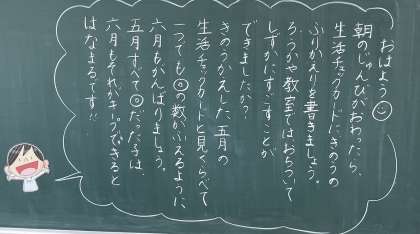 おはよう
朝のじゅんびがおわったら、
生活チェックカードにきのうの
ふりかえりを書きましょう。
ろうかや教室ではおちついて
しずかにすごすことが
できましたか?
きのうかえした五月の
生活チェックカードと見くらべて
一つでも◎の数がふえるように、
六月もがんばりましょう。
五月すべて◎だった子は、
六月もそれがキープできると
はなまるです!!